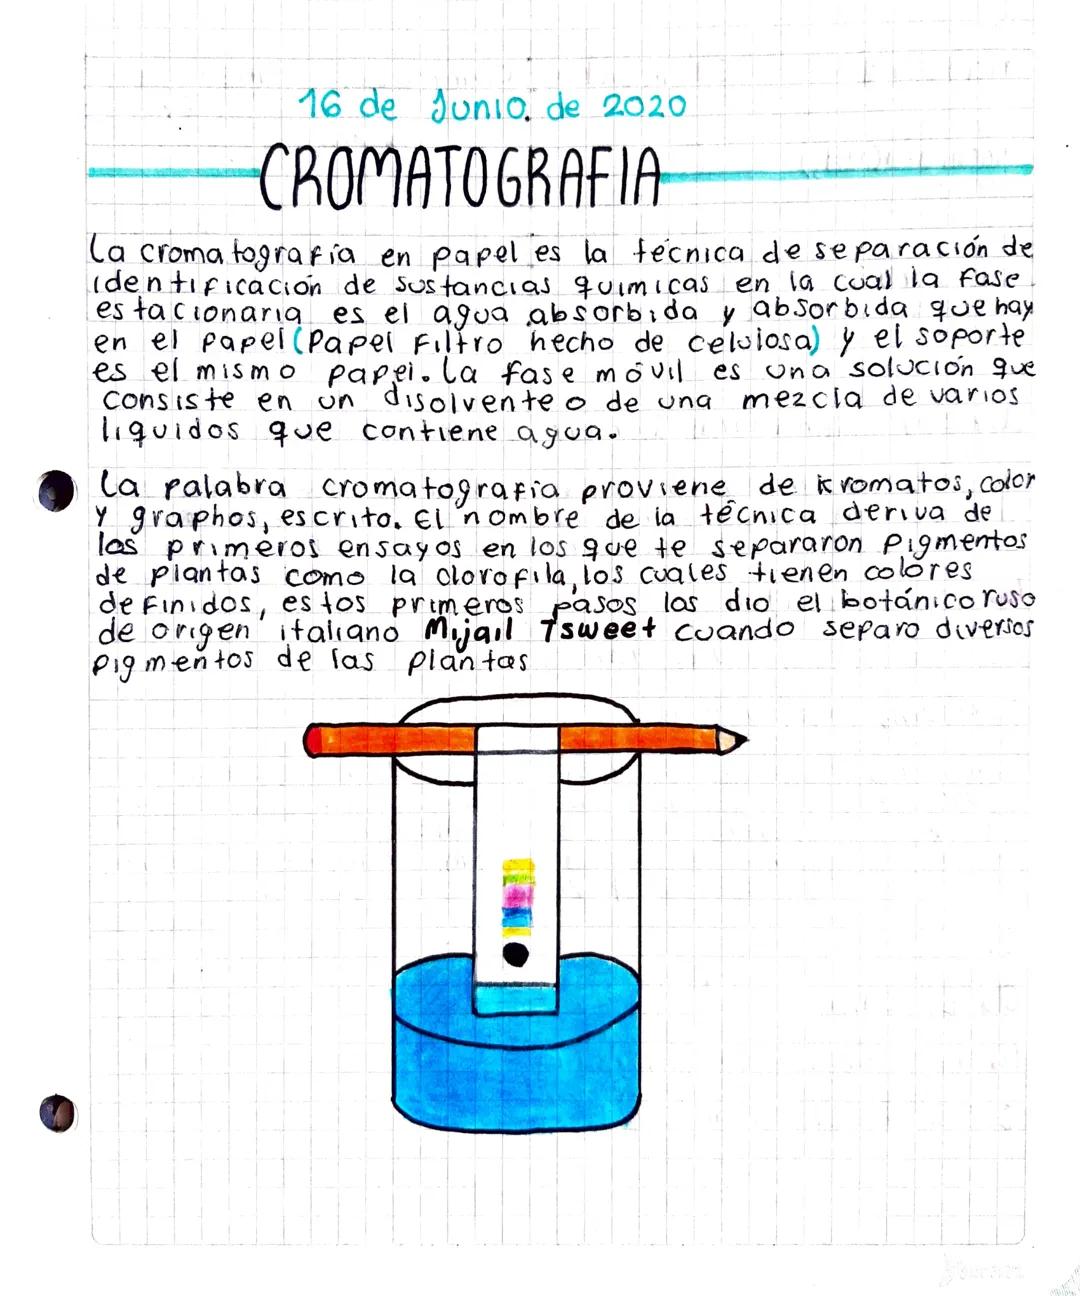 16 de Junio. de 2020
CROMATOGRAFIA
La cromatografía en papel es la técnica de separación de
identificación de sustancias químicas en la cual la fase
estacionaria es el agua absorbida y absorbida que hay
en el papel (Papel Filtro hecho de celulosa) y el soporte
es el mismo papel. La fase móvil es una solución que
consiste en un disolvente o de una mezcla de varios
liquidos que contiene agua.
La palabra cromatografía proviene de kromatos, color
y graphos, escrito. El nombre de la técnica deriva de
los primeros ensayos en los que te separaron pigmentos
de plantas como la clorofila, los cuales tienen colores
definidos, estos primeros pasos los dio el botánico ruso
de origen italiano Mijail Tsweet cuando separo diversos
pigmentos de las plantas